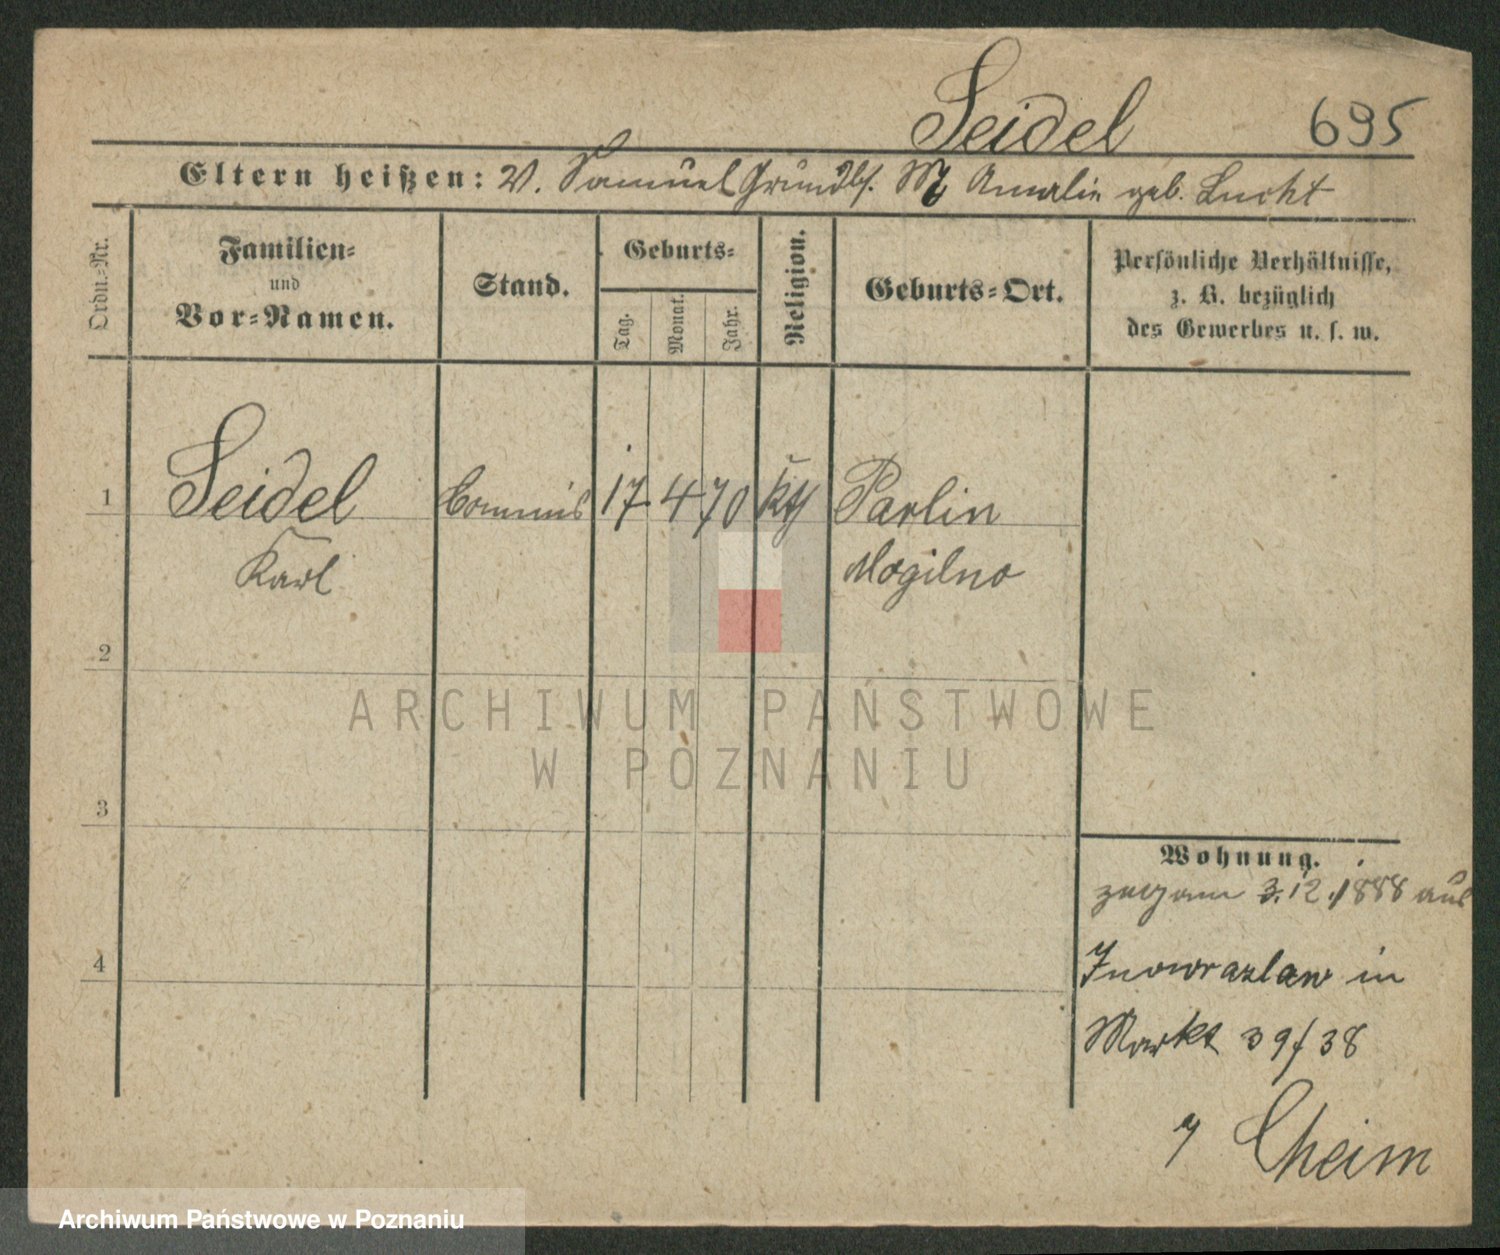 Seidel 695
Eltern heißen: V. Samuel Grundbs. M Amalie geb. Lucht
Ordn.-Nr.
Familien-
und
Vor-Namen.
Stand.
Geburts-
Tag.
Monat.
Jahr.
Religion.
Geburts-Ort.
Persönliche Verhältnisse,
z. B. bezüglich
des Gewerbes u. s. w.
1 Seidel Commis 17 4 70 kth Parlin
Karl Mogilno
2
3
4
ARCHIWUM PAŃSTWOWE
W POZNANIU
Wohnung.
zugzom 3.12.1888 aus
Inowrazlaw in
Markt 39/38
Cheim
Archiwum Państwowe w Poznaniu